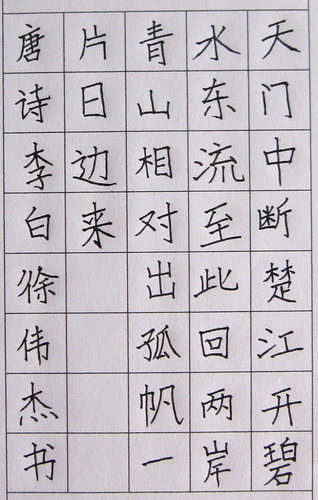 天门中断楚江开碧
水东流至此回两岸
青山相对出孤帆一
片日边来
唐诗李白徐伟杰书